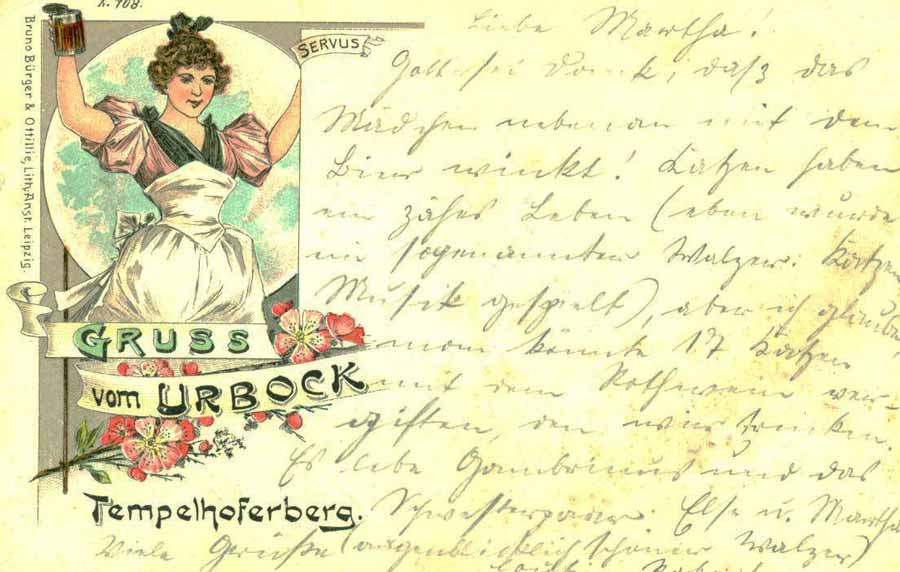 K. 708.
Bruno Bürger & Ottillie, Lith. Anst. Leipzig.
SERVUS
GRUSS
vom URBOCK
Tempelhoferberg.
Liebe Martha!
Gott sei Dank, daß das
Mädchen nebenan mit dem
Bier winkt! Katzen haben
ein zähes Leben (eben wurde
im sogenannten Walzer: Katzen
Musik gespielt), aber ich glaube
man könnte 17 Katzen
mit dem Rothwein ver-
giften, den wir trinken.
Es lebe Gambrinus und das
Schwesterpaar: Else u. Martha
Viele Grüße (augenblicklich schöner Walzer)